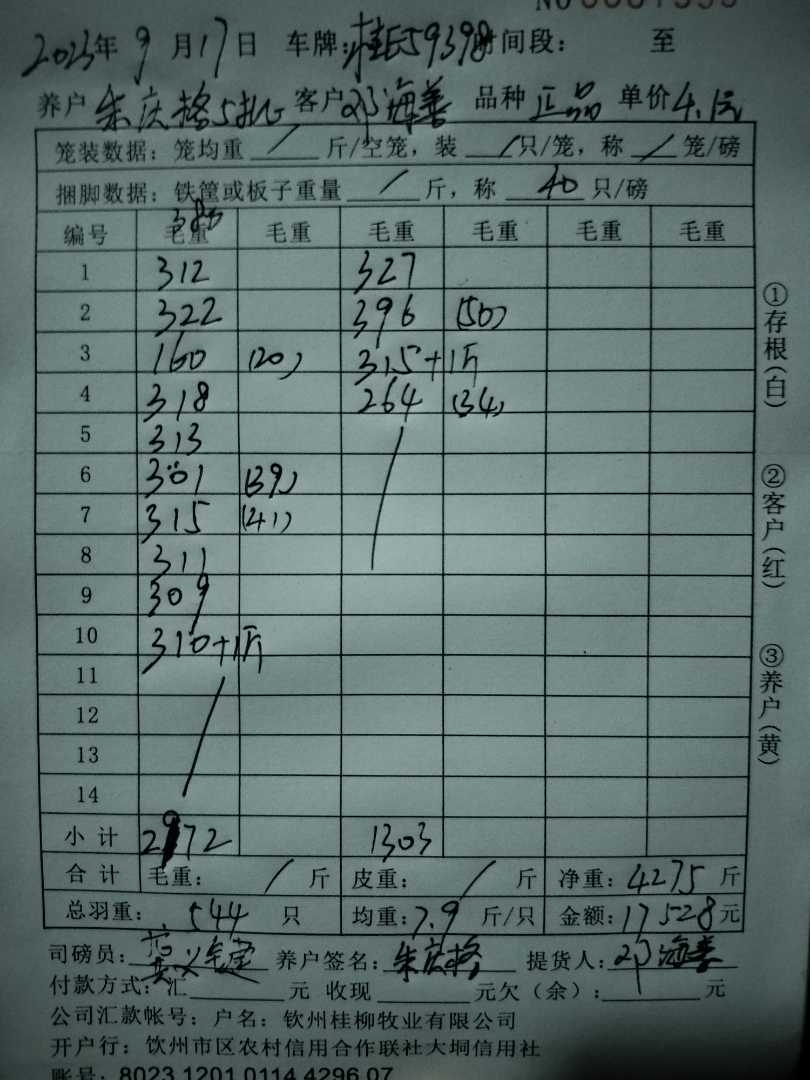 2023年9月17日 车牌:桂E59398时间段: 至
养户 朱庆格5批 客户 邓海善 品种 正品 单价 4.1元
笼装数据: 笼均重 / 斤/空笼, 装 / 只/笼, 称 / 笼/磅
捆脚数据: 铁筐或板子重量 / 斤, 称 40 只/磅
编号 毛重 毛重 毛重 毛重 毛重 毛重
1 312 327
2 322 396 (50)
3 160 (20) 315+1斤
4 318 264 (34)
5 313
6 301 (39)
7 315 (41)
8 311
9 309
10 310+1斤
11
12
13
14
小计 2972 1303
合计 毛重: / 斤 皮重: / 斤 净重: 4275 斤
总羽重: 544 只 均重: 7.9 斤/只 金额: 17528元
司磅员: 养户签名: 朱庆格 提货人: 邓海善
付款方式: 汇 元 收现 元欠(余): 元
公司汇款帐号: 户名: 钦州桂柳牧业有限公司
开户行: 钦州市区农村信用合作联社大垌信用社
账号: 8023 1201 0114 4296 07
①存根(白)
②客户(红)
③养户(黄)